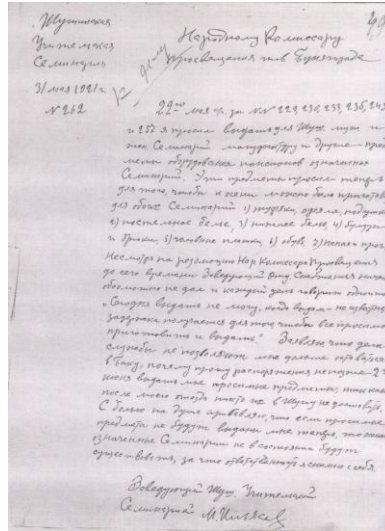 Шушинская
Учительская
Семинария
31 мая 1921 г.
N 262
Народному Комиссару
Просвещения тов. Буниятзаде
К делу
22го мая с/г. за NN 229, 230, 233, 235, 245
и 257 я просил выдать для Шуш. муж. и
жен. Семинарий мануфактуру и другие пред-
меты оборудования пансионов означенных
Семинарий. Эти предметы просил теперь
для того, чтобы к осени можно было приготовить
для обоих Семинарий 1) тюфяки, одеяла, подушки
2) постельное белье, 3) нательное белье, 4) блузы
и брюки, 5) носовые платки, 6) обувь,
Несмотря на резолюцию Нар. Комиссара Просвещения
до сего времени Заведующий Отд. Снабжения ничего
абсолютно не дал и каждый день говорит одно и то же
"Сегодня выдать не могу, когда выдам - не известно,
задержка получается для того чтобы все просимое
приготовить и выдать." Заявляю что дела
службы не позволяют мне дольше оставаться
в Баку, почему прошу распоряжения не позже 2го
июня выдать мне просимые предметы, так как
после моего отъезда никто их в Шушу не доставит.
С болью на душе заявляю, что если просимые
предметы не будут выданы мне теперь, то
означенные Семинарии не в состоянии будут
существовать, за что ответственность я снимаю с себя.
Заведующий Шуш. Учительской
Семинарией